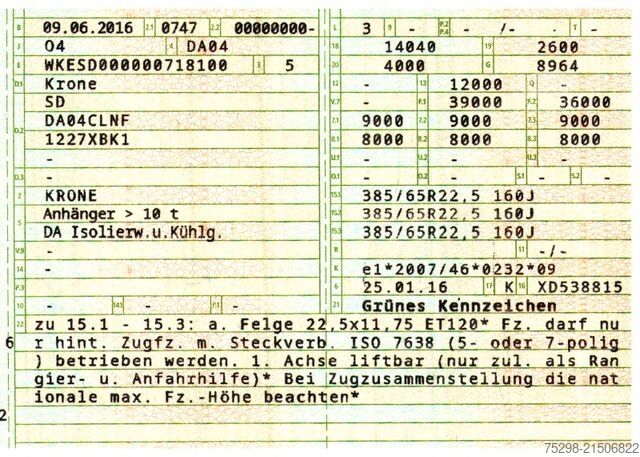 B 09.06.2016 2.1 0747 2.2 00000000- L 3 9 - P.2 P.4 - /- T -
J O4 4 DA04 18 14040 19 2600
E WKESD000000718100 3 5 20 4000 G 8964
D.1 Krone 12 - 13 12000 Q -
SD V.7 - F.1 39000 F.2 36000
D.2 DA04CLNF 7.1 9000 7.2 9000 7.3 9000
1227XBK1 8.1 8000 8.2 8000 8.3 8000
- U.1 - U.2 - U.3 -
D.3 - O.1 - O.2 - S.1 - S.2 -
2 KRONE 15.1 385/65R22,5 160J
5 Anhänger > 10 t 15.2 385/65R22,5 160J
DA Isolierw.u.Kühlg. 15.3 385/65R22,5 160J
V.9 - R - 11 -/-
14 - K e1*2007/46*0232*09
- 6 25.01.16 17 K 16 XD538815
10 - 14.1 - P.1 - 21 Grünes Kennzeichen
22 zu 15.1 - 15.3: a. Felge 22,5x11,75 ET120* Fz. darf nu
6 r hint. Zugfz. m. Steckverb. ISO 7638 (5- oder 7-polig
) betrieben werden. 1. Achse liftbar (nur zul. als Ran
gier- u. Anfahrhilfe)* Bei Zugzusammenstellung die nat
ionale max. Fz.-Höhe beachten*
2
75298-21506822